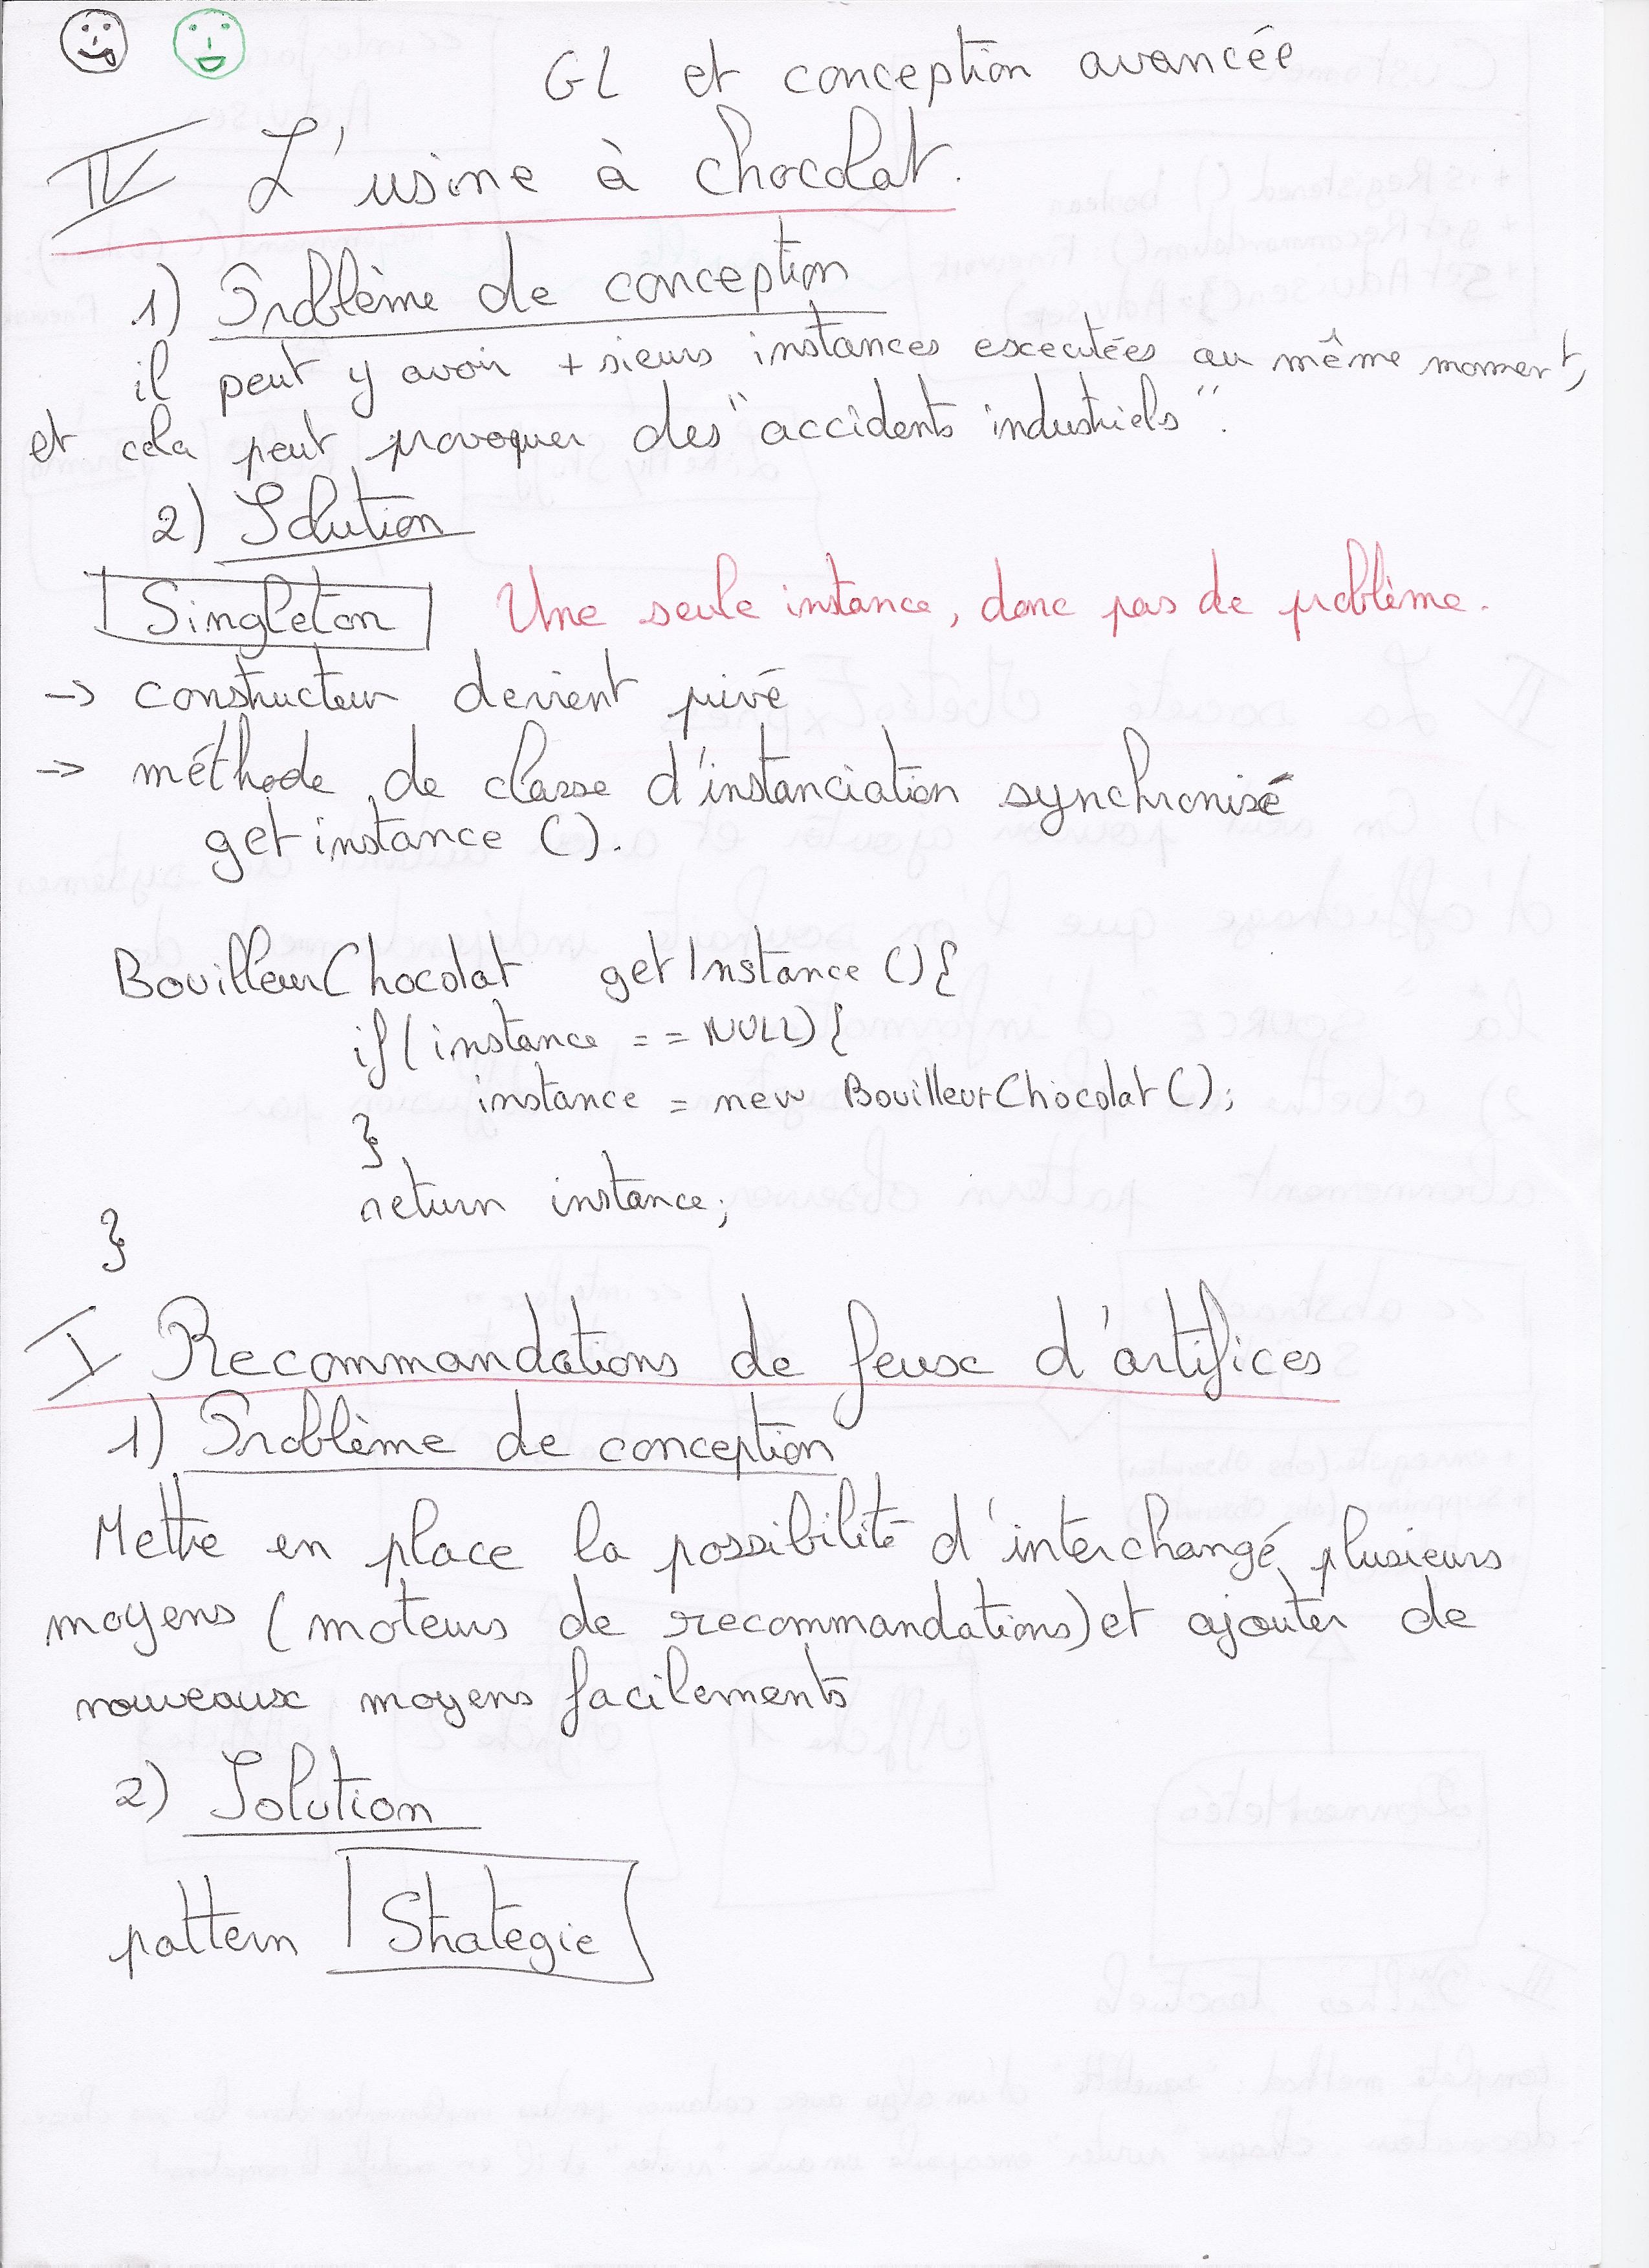 GL et conception avancée
IV L'usine à chocolat.
1) Problème de conception
il peut y avoir +sieurs instances executées au même moment,
et cela peut provoquer des "accidents industriels".
2) Solution
Singleton Une seule instance, donc pas de problème.
-> constructeur devient privé
-> méthode de classe d'instanciation synchronisé
getinstance ().
BouilleurChocolat getInstance (){
if(instance == NULL){
instance = new BouilleurChocolat();
}
return instance;
}
I Recommandations de feux d'artifices
1) Problème de conception
Mettre en place la possibilité d'interchangé plusieurs
moyens (moteurs de recommandations) et ajouter de
nouveaux moyens facilements
2) Solution
pattern Strategie